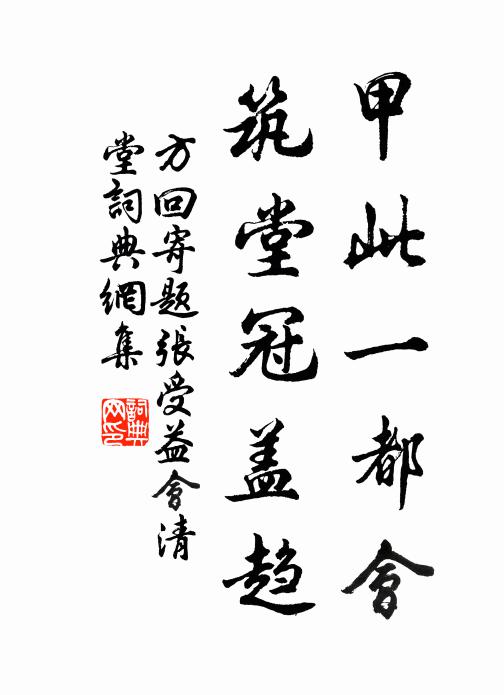 甲此一都會
筑堂冠盖趋
方回寄题張受益會清
堂詞典網集
詞典网印